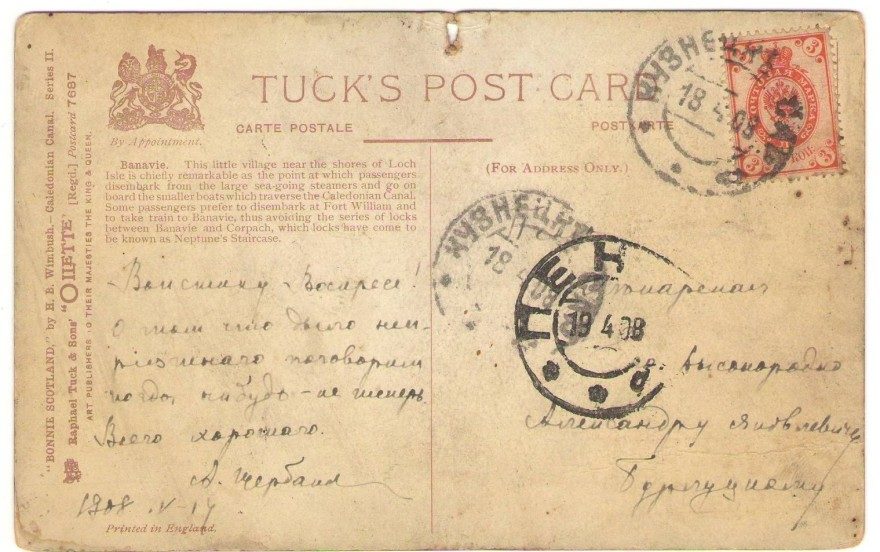 "BONNIE SCOTLAND," by H. B. Wimbush.—Caledonian Canal. Series II.
Raphael Tuck & Sons' "OILETTE" [Regd.] Postcard 7687
ART PUBLISHERS TO THEIR MAJESTIES THE KING & QUEEN.
By Appointment.
TUCK'S POST CARD
CARTE POSTALE
POSTCARTE
(FOR ADDRESS ONLY.)
Banavie. This little village near the shores of Loch
Isle is chiefly remarkable as the point at which passengers
disembark from the large sea-going steamers and go on
board the smaller boats which traverse the Caledonian Canal.
Some passengers prefer to disembark at Fort William and
to take train to Banavie, thus avoiding the series of locks
between Banavie and Corpach, which locks have come to
be known as Neptune's Staircase.
Воистину Воскресе!
О том что было неп-
поговорим
когда нибудь - не теперь
Всего хорошаго.
А. Щербак
1908
Printed in England.
КУЗНЕЦКЪ
18 4 08
3
3
3
КУЗНЕЦКЪ
18 4 08
ПЕН
19 4 08
Высокородію
Александру Яковлевичу